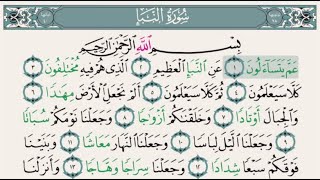 سُورَةُ النَّبَإِ
بِسْمِ اللَّهِ الرَّحْمَٰنِ الرَّحِيمِ
عَمَّ يَتَسَآءَلُونَ ١ عَنِ ٱلنَّبَإِ ٱلْعَظِيمِ ٢ ٱلَّذِى هُمْ فِيهِ مُخْتَلِفُونَ ٣
كَلَّا سَيَعْلَمُونَ ٤ ثُمَّ كَلَّا سَيَعْلَمُونَ ٥ أَلَمْ نَجْعَلِ ٱلْأَرْضَ مِهَٰدًا ٦
وَٱلْجِبَالَ أَوْتَادًا ٧ وَخَلَقْنَٰكُمْ أَزْوَٰجًا ٨ وَجَعَلْنَا نَوْمَكُمْ سُبَاتًا
٩ وَجَعَلْنَا ٱلَّيْلَ لِبَاسًا ١٠ وَجَعَلْنَا ٱلنَّهَارَ مَعَاشًا ١١ وَبَنَيْنَا
فَوْقَكُمْ سَبْعًا شِدَادًا ١٢ وَجَعَلْنَا سِرَاجًا وَهَّاجًا ١٣ وَأَنزَلْنَا